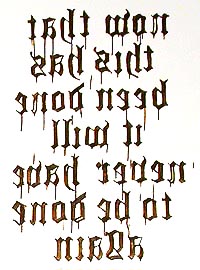 now that
this has
been gone
it will
never have
to be gone
again